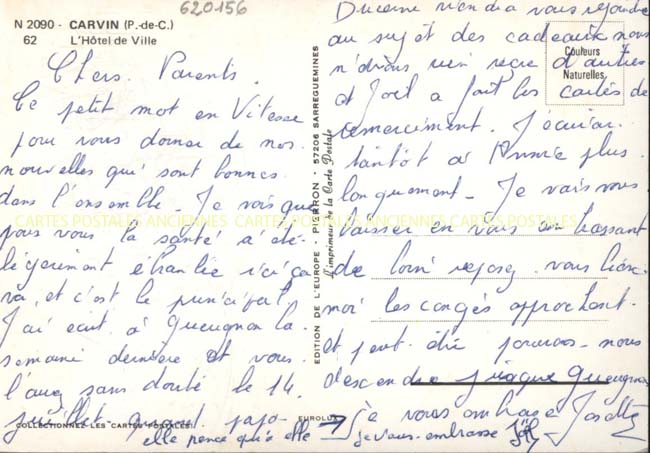 620156
N 2090 - CARVIN (P.-de-C.)
62 L'Hôtel de Ville
Chers Parents.
Ce petit mot en Vitesse
pour vous donner de nos
nouvelles qui sont bonnes
dans l'ensemble. Je vois que
pour vous la santé a été
légèrement ébranlée ici ça
va, et c'est le principal
J'ai écrit à Gueugnon la
semaine dernière et vous
l'aurez sans doute le 14
juillet quant papa
elle pense qu'à elle
COLLECTIONNEZ LES CARTES POSTALES
EUROLUX
EDITION DE L'EUROPE - PIERRON - 57206 SARREGUEMINES
L'imprimeur de la Carte Postale
Couleurs
Naturelles
viendra vous rejoindre
au sujet des cadeaux nous
n'avons rien reçu d'autres
et Joël a fait les cartes de
remerciement. J'écrirai
tantôt à Annie plus
longuement. Je vais vous
laisser en vous embrassant
de loin reposez vous bien
moi les congés approchent
et peut être pourrons-nous
descendre jusque Gueugnon
je vous embrasse Josette
je vous embrasse Joël
CARTES POSTALES ANCIENNES CARTES POSTALES ANCIENNES CARTES POSTALES ANCIENNES